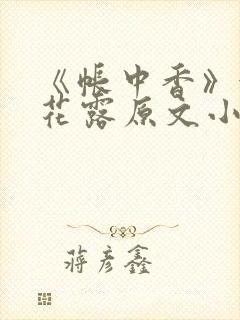 《帐中香》
花露原文小
蒋彦鑫